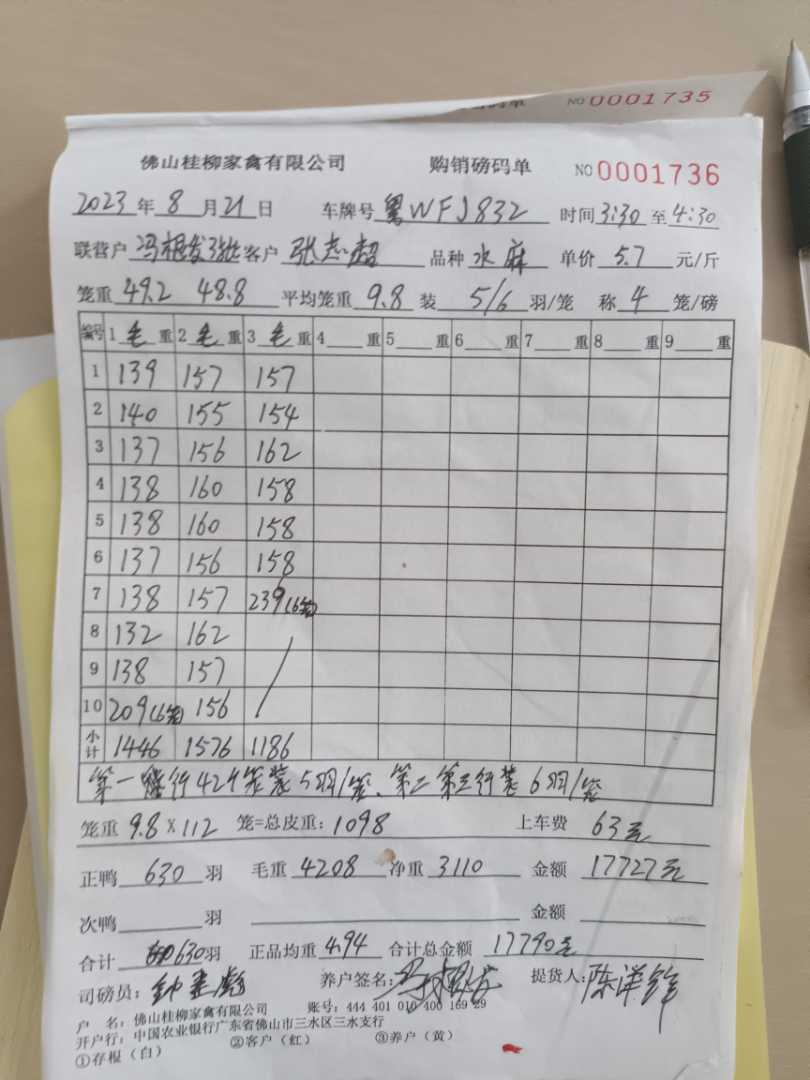 NO 0001735
佛山桂柳家禽有限公司 购销磅码单 NO 0001736
2023年8月21日 车牌号 粤WFJ832 时间3:30至4:30
联营户 冯根发 客户 张志超 品种 水麻 单价 5.7 元/斤
笼重 49.2 48.8 平均笼重 9.8 装 5/6 羽/笼 称 4 笼/磅
编号 1 毛 重 2 毛 重 3 毛 重 4 重 5 重 6 重 7 重 8 重 9 重
1 139 157 157
2 140 155 154
3 137 156 162
4 138 160 158
5 138 160 158
6 137 156 158
7 138 157 239(6笼)
8 132 162
9 138 157
10 209(6笼) 156
小计 1446 1576 1186
第一行42个笼装5羽/笼、第二第三行装6羽/笼
笼重 9.8×112 笼=总皮重：1098 上车费 63元
正鸭 630 羽 毛重 4208 净重 3110 金额 17727元
次鸭 羽 金额
合计 630羽 正品均重 4.94 合计总金额 17790元
司磅员： 养户签名： 提货人：陈洋锋
户 名：佛山桂柳家禽有限公司 账号：444 401 010 400 169 29
开户行：中国农业银行广东省佛山市三水区三水支行
①存根（白） ②客户（红） ③养户（黄）